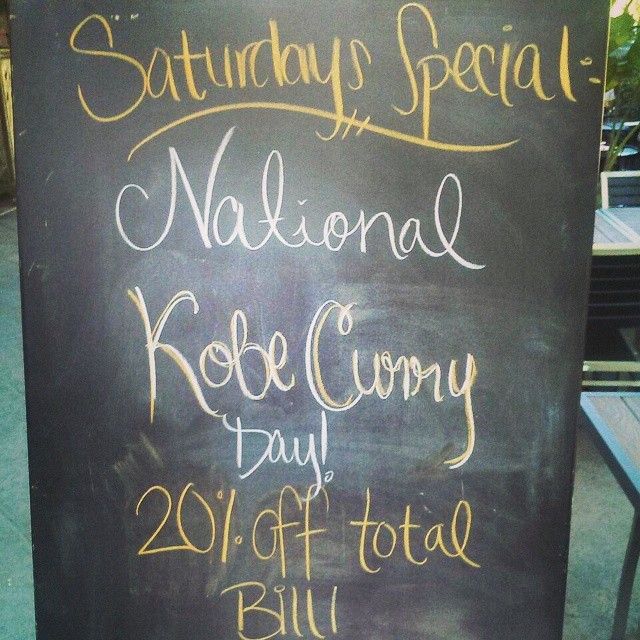 Saturdays Special:
National
Kobe Curry
Day!
20% off total
Bill!